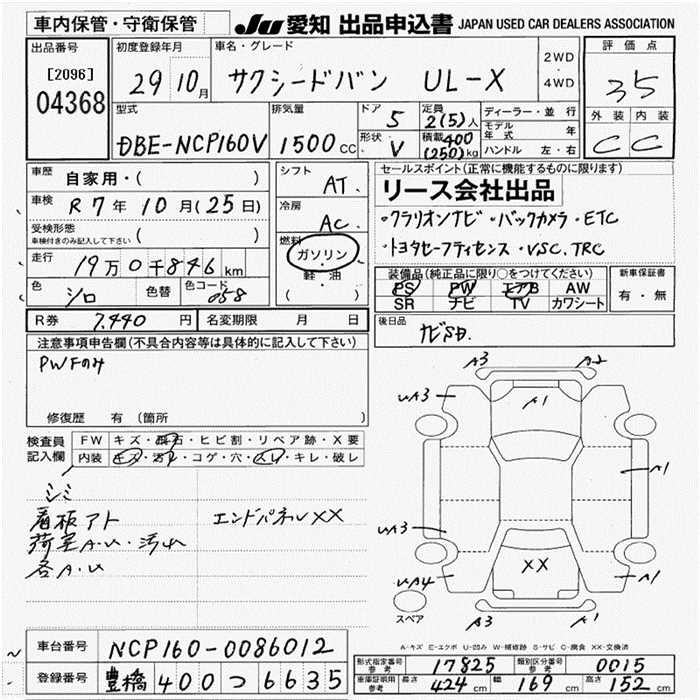 車内保管・守衛保管
JU 愛知 出品申込書 JAPAN USED CAR DEALERS ASSOCIATION
出品番号
[2096]
04368
初度登録年月
29 10月
車名・グレード
サクシードバン UL-X
2WD
・
4WD
評価点
3.5
外装 内装
C C
型式
DBE-NCP160V
排気量
1500cc
ドア 5
形状 V
定員 2(5)人
積載 400(250)kg
ディーラー・並行
モデル年式 年
ハンドル 左・右
車歴 自家用・( )
車検 R7年10月(25日)
受検形態
車検付きのみ記入して下さい ( )
走行 19万0千846km
色 シロ 色替 色コード 058
シフト AT
冷房 AC
燃料 ガソリン
・
軽・油
( )
セールスポイント(正常に機能するものに限ります)
リース会社出品
・クラリオンナビ・バックカメラ・ETC
・トヨタセーフティセンス・VSC.TRC
装備品(純正品に限り○をつけてください)
PS PW エアB AW
SR ナビ TV カワシート
新車保証書
有・無
R券 7.440円 名変期限 月 日
後日品
ナビSD.
注意事項申告欄(不具合内容等は具体的に記入して下さい)
PWFのみ
修復歴 有(箇所 )
検査員記入欄
FW キズ・飛石・ヒビ割・リペア跡・X要
内装 キズ・汚れ・コゲ・穴・スレ・キレ・破レ
シミ
看板アト エンドパネルXX
荷室A.U・汚れ
各A.U
A3 A2
UA3 A1
A1
UA3
XX
UA4 A1
A1
スペア
A-キズ E-エクボ U-凹み W-補修跡 S-サビ C-腐食 XX-交換済
車台番号 NCP160-0086012
登録番号 豊橋 400 つ 6635
形式指定番号 参考 17825 類別区分番号 参考 0015
車庫証明用 参考 長さ 424cm 幅 169cm 高さ 152cm